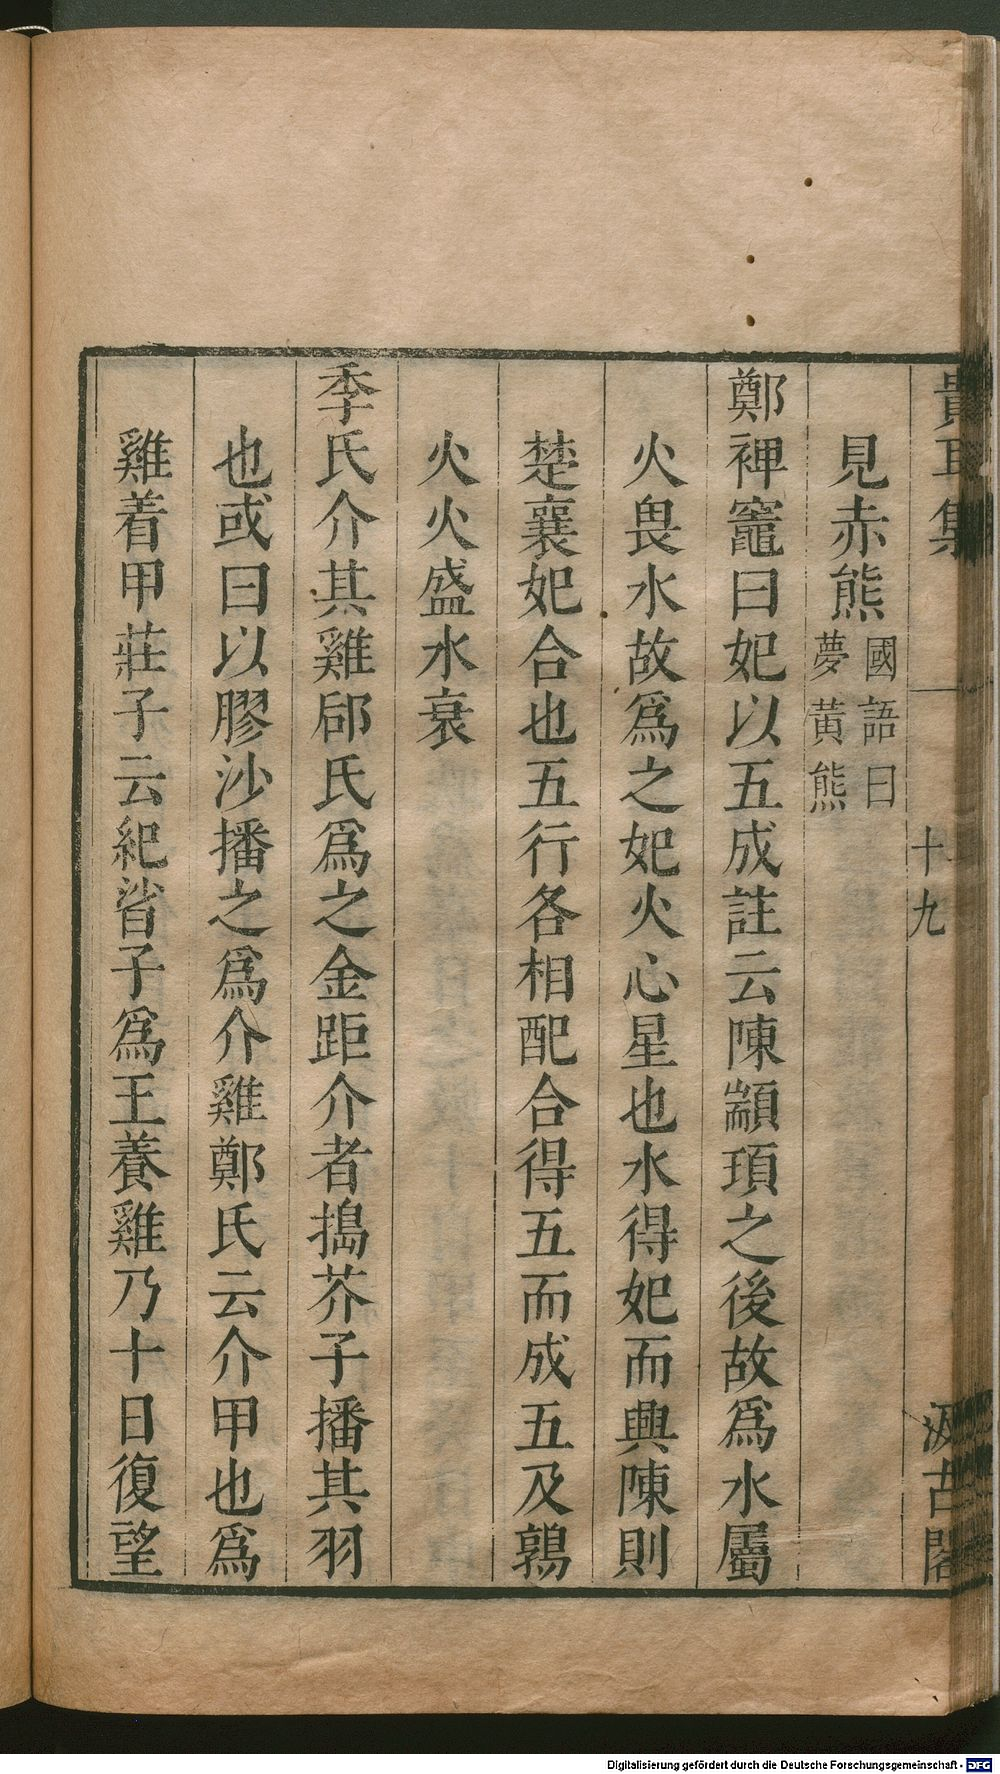 貴耳集
十九
汲古閣
見赤熊國語曰
夢黃熊
鄭禆竈曰妃以五成註云陳顓頊之後故爲水屬
火畏水故爲之妃火心星也水得妃而興陳則
楚襄妃合也五行各相配合得五而成五及鶉
火火盛水衰
季氏介其雞郈氏爲之金距介者搗芥子播其羽
也或曰以膠沙播之爲介雞鄭氏云介甲也爲
雞着甲莊子云紀渻子爲王養雞乃十日復望
Digitalisierung gefördert durch die Deutsche Forschungsgemeinschaft - DFG